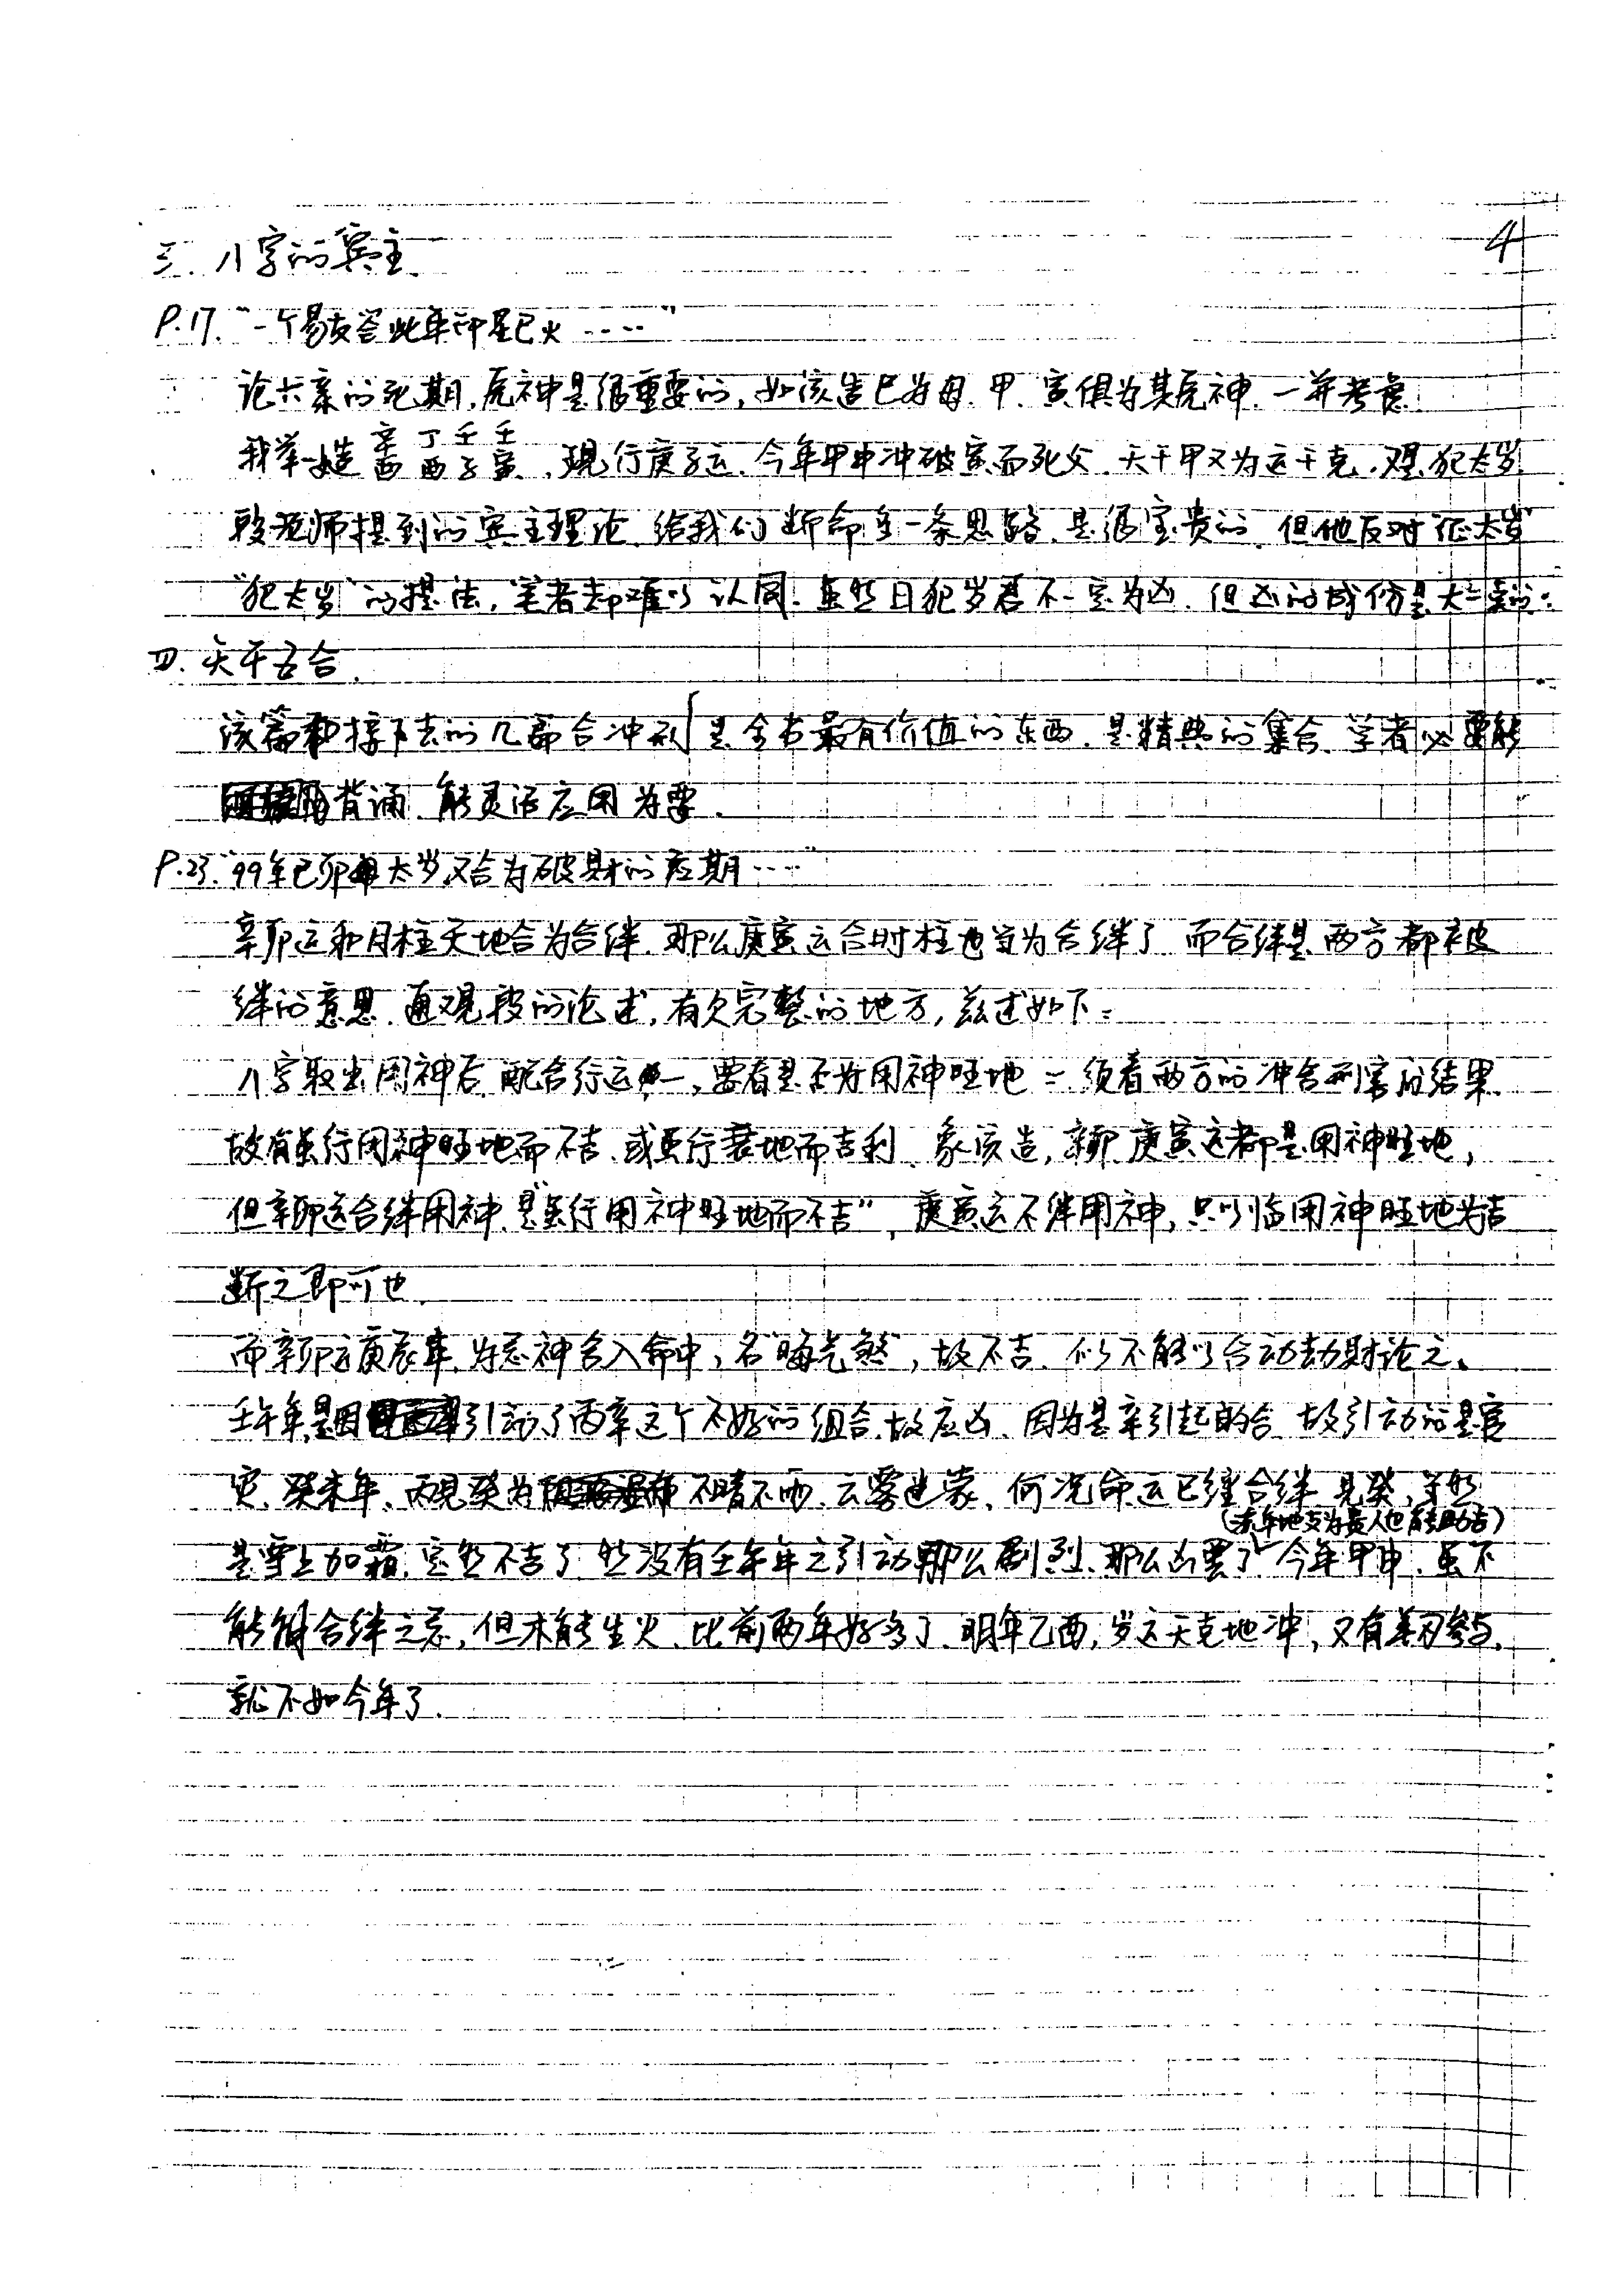 4
三. 八字的宾主.
P.17. "一个易友答此年冲是巳火……"
论六亲的死期,原神是很重要的,如该造巳为母.甲.寅俱为其原神.一并考虑.
辛 丁 壬 壬
我举一造 酉 酉 子 寅 ,现行庚子运.今年甲申冲破寅而死父.天干甲又为运干克.犯太岁.
段老师提到的宾主理论.给我们断命多一条思路.是很宝贵的.但他反对"征太岁"
"犯太岁"的提法,笔者却难以认同.虽然日犯岁君不一定为凶.但凶的成份是大一点的.
四. 天干五合.
该篇和接下去的几篇合冲刑 是全书最有价值的东西.是精典的集合.学者必要能
背诵.能灵活应用为要.
P.23. "99年己卯太岁又合为破财的应期……"
辛卯运和月柱天地合为合绊.那么庚寅运合时柱也当为合绊了.而合绊是两方都被
绊的意思.通观段的论述,有欠完整的地方,兹述如下:
八字取出用神后.配合行运,一,要看是否为用神旺地 二须看两方的冲合刑害的结果.
故有虽行用神旺地而不吉.或虽行衰地而吉利.象该造,辛卯.庚寅运都是用神旺地,
但辛卯运合绊用神.是"虽行用神旺地而不吉",庚寅运不绊用神,只以临用神旺地为吉
断之即可也.
而辛卯运庚辰年.为忌神合入命中,名"晦光煞",故不吉.似不能以合动劫财论之.
壬午年是因引动了丙辛这个不好的组合.故应凶.因为是辛引起的合.故引动的是官
灾.癸未年.丙见癸为不晴不雨.云雾迷蒙.何况命运已缠合绊.见癸,当然
(流年地支为贵人也能助吉)
是雪上加霜.定然不吉了.然没有壬午年之引动那么剧烈.那么凶罢了.今年甲申.虽不
能解合绊之忌,但木能生火.比前两年好多了.明年乙酉,岁运天克地冲,又有羊刃参与.
就不如今年了.